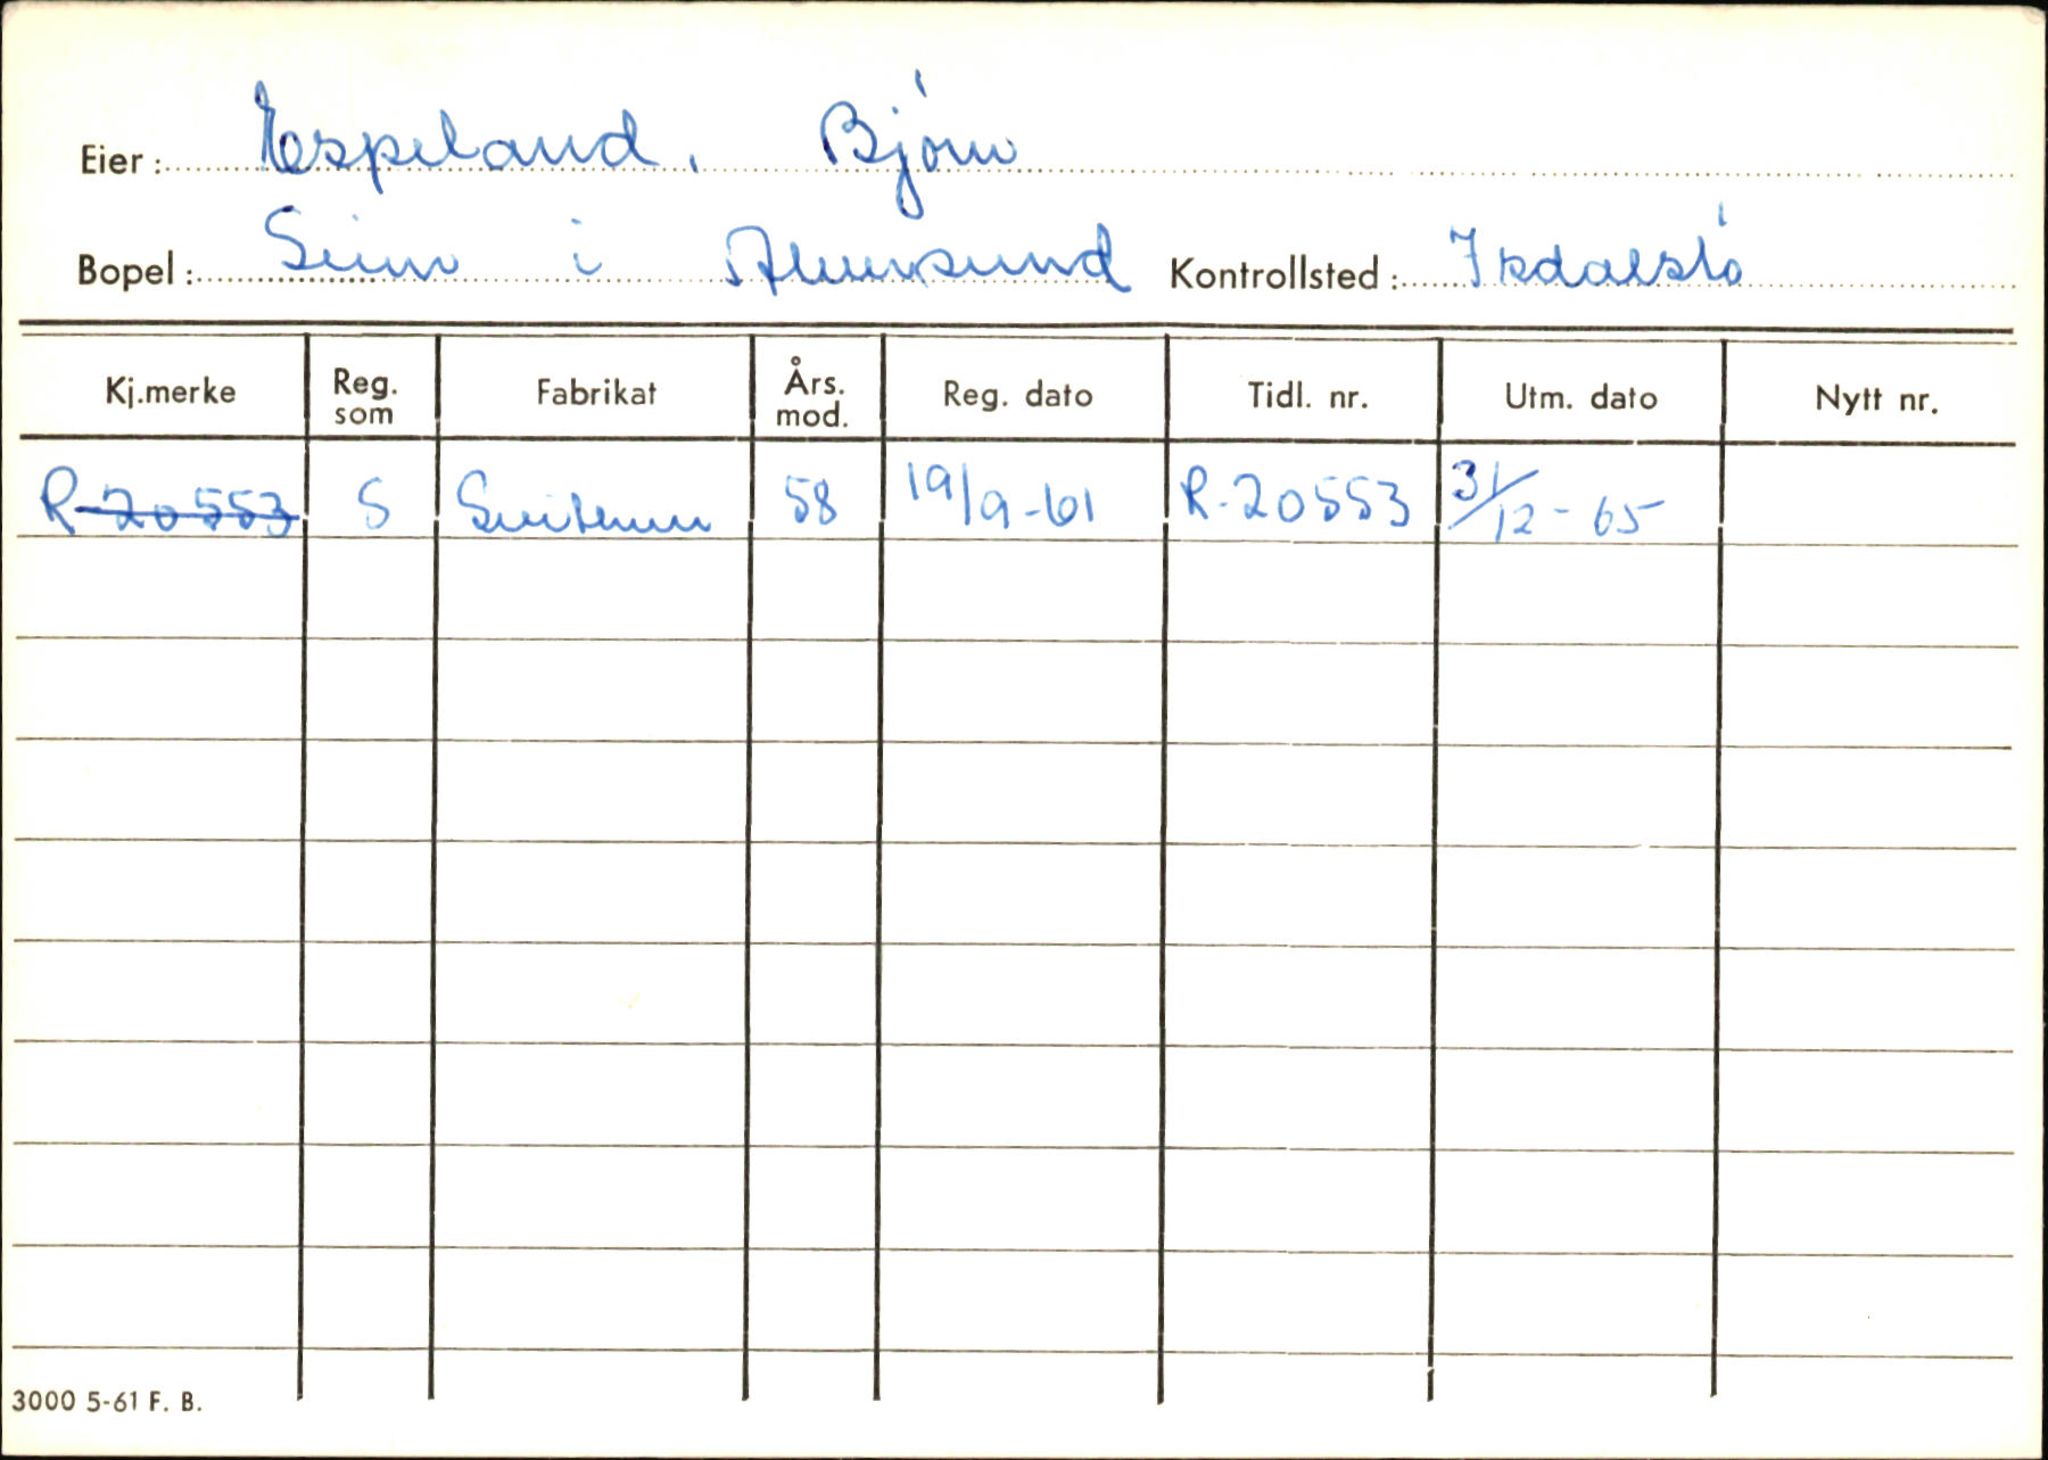 Eier: Espeland. Bjørn
Bopel: Seim i Alversund Kontrollsted: Isdalstø
Kj.merke Reg. som Fabrikat Års. mod. Reg. dato Tidl. nr. Utm. dato Nytt nr.
R-20553 S 58 19/9-61 R-20553 31/12-65
3000 5-61 F. B.